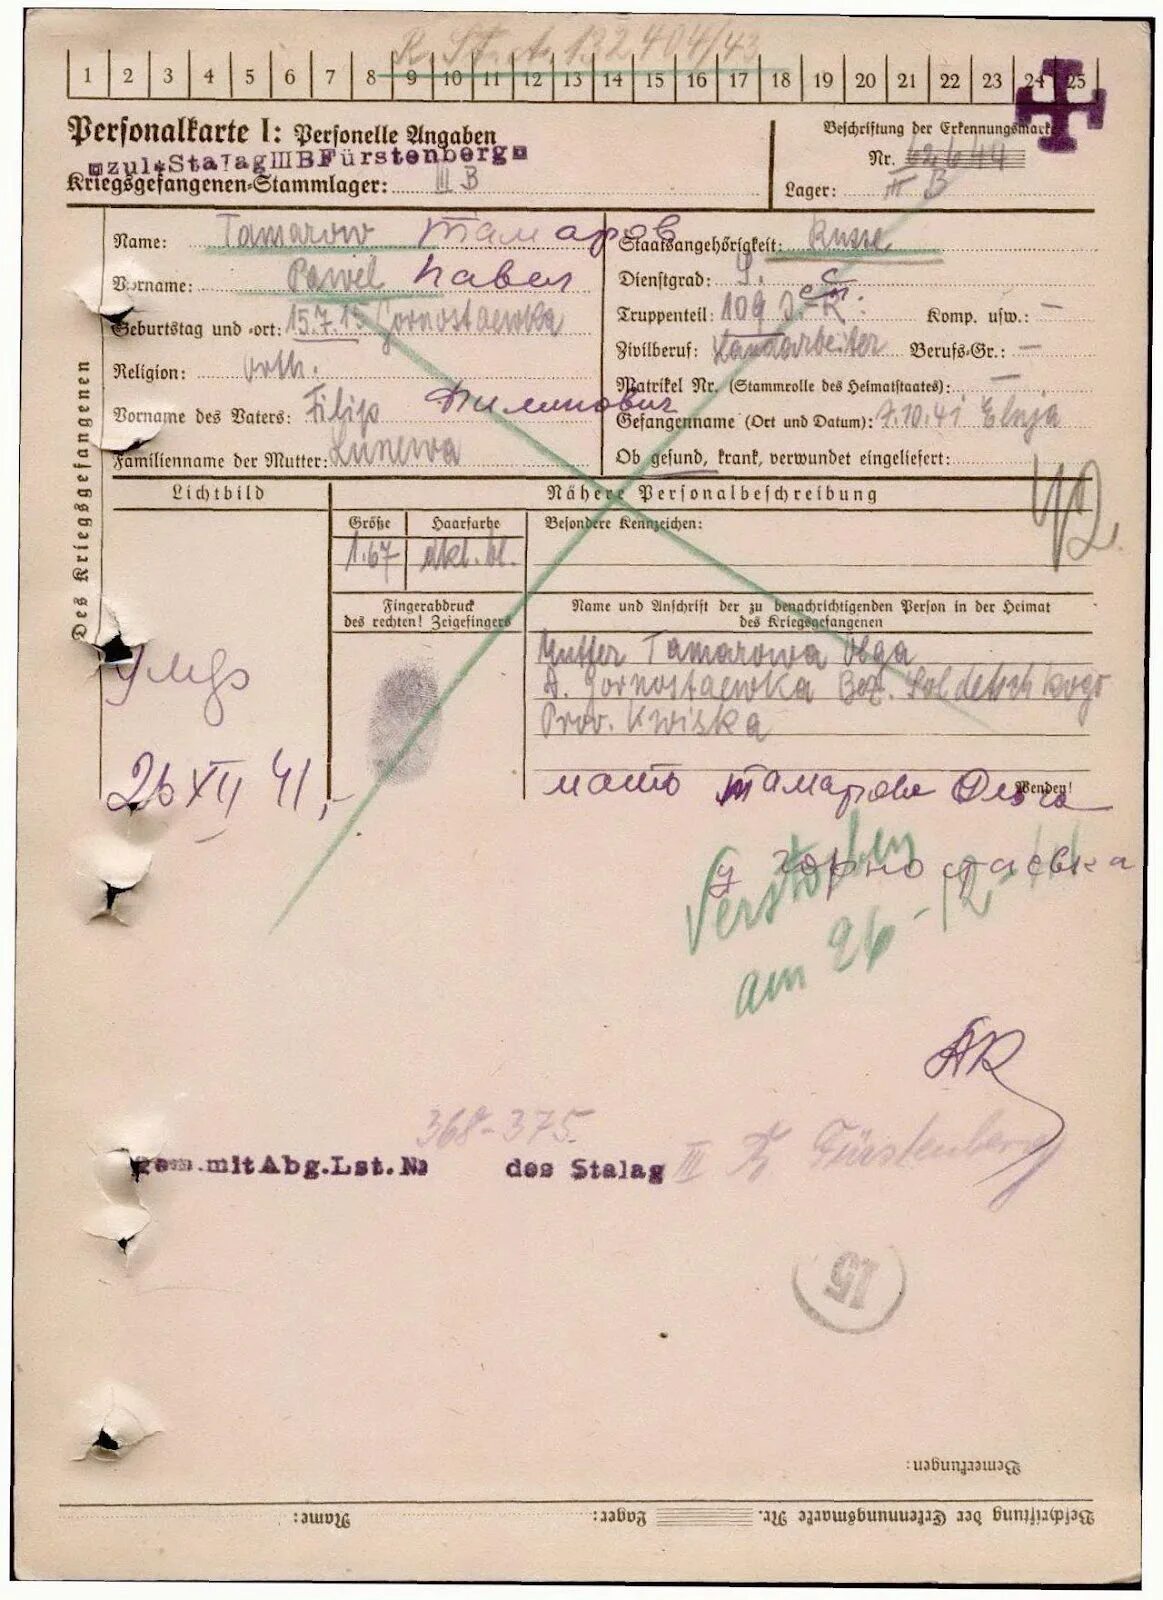 R. St. A. 132 404/43
1 2 3 4 5 6 7 8 9 10 11 12 13 14 15 16 17 18 19 20 21 22 23 24 25
Personalkarte I: Personelle Angaben
zul. Stalag III B Fürstenberg
Kriegsgefangenen-Stammlager: III B
Beschriftung der Erkennungsmarke
Nr. 62644
Lager: III B
Des Kriegsgefangenen
Name: Tamarow Тамаров
Vorname: Pawel Павел
Geburtstag und -ort: 15.7.15 Gornostaewka
Religion: orth.
Vorname des Vaters: Filip Филипович
Familienname der Mutter: Lunewa
Staatsangehörigkeit: Russe
Dienstgrad: S.
Truppenteil: 109 J.-R. Komp. usw.: —
Zivilberuf: Landarbeiter Berufs-Gr.: —
Matrikel Nr. (Stammrolle des Heimatstaates): —
Gefangennahme (Ort und Datum): 7.10.41 Elnja
Ob gesund, krank, verwundet eingeliefert:
Lichtbild
Nähere Personalbeschreibung
42
Größe Haarfarbe Besondere Kennzeichen:
1.67 dkl. bl.
Fingerabdruck
des rechten! Zeigefingers
Name und Anschrift der zu benachrichtigenden Person in der Heimat
des Kriegsgefangenen
Mutter Tamarowa Olga
D. Gornostaewka Bez.
Prov.
умер
26 XII 41
мать Тамарова Ольга
Wenden!
горностаевка
Verstorben
am 26-12
368-375
gem. mit Abg. Lst. No des Stalag III B Fürstenberg
15
Bemerkungen:
Beschriftung der Erkennungsmarke Nr. Lager: Name: